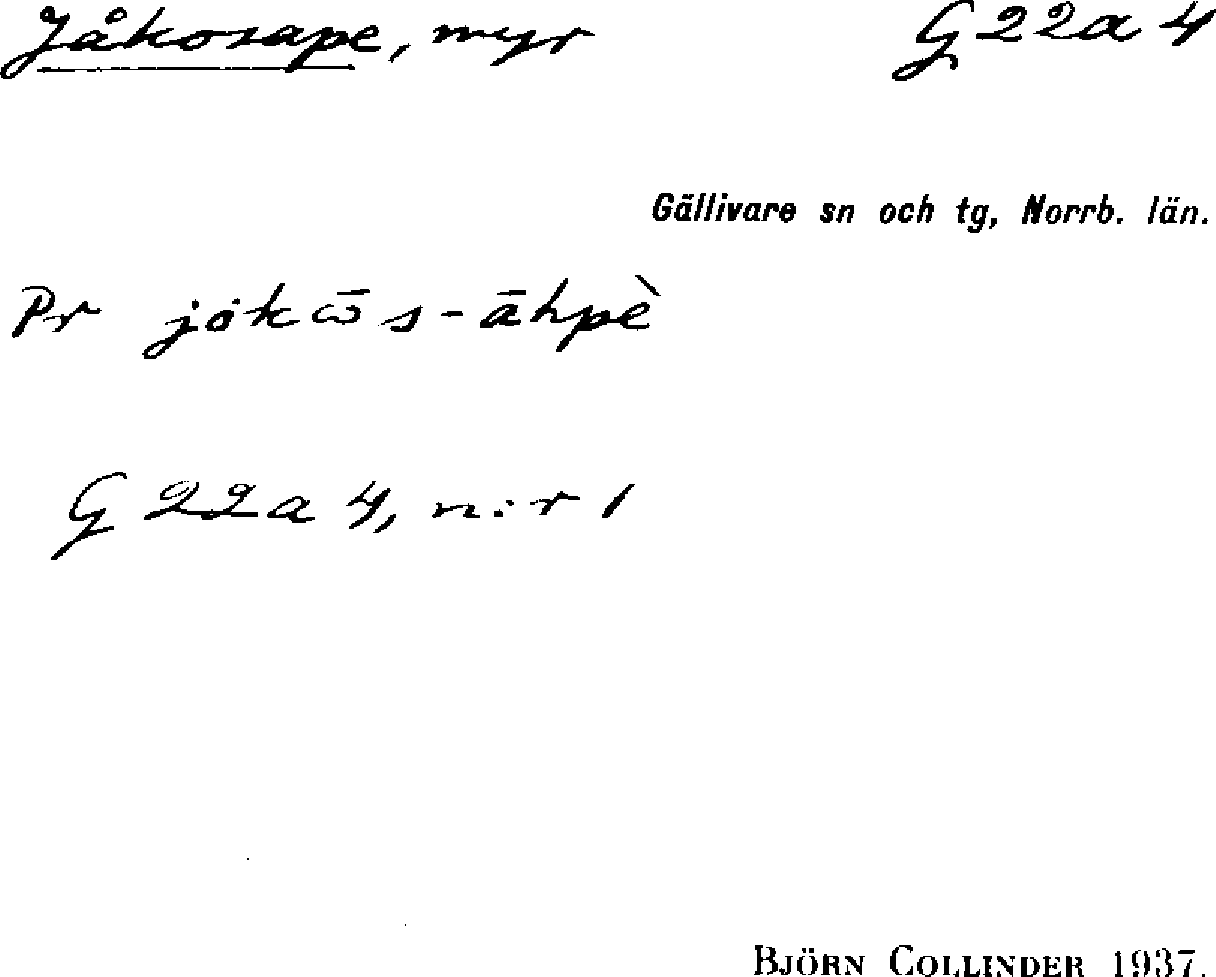 Jåkosape, myr G 22a 4
Gällivare sn och tg, Norrb. län.
Pr jȧkω̄s-āhpè
G 22a 4, n:r 1
BJÖRN COLLINDER 1937.